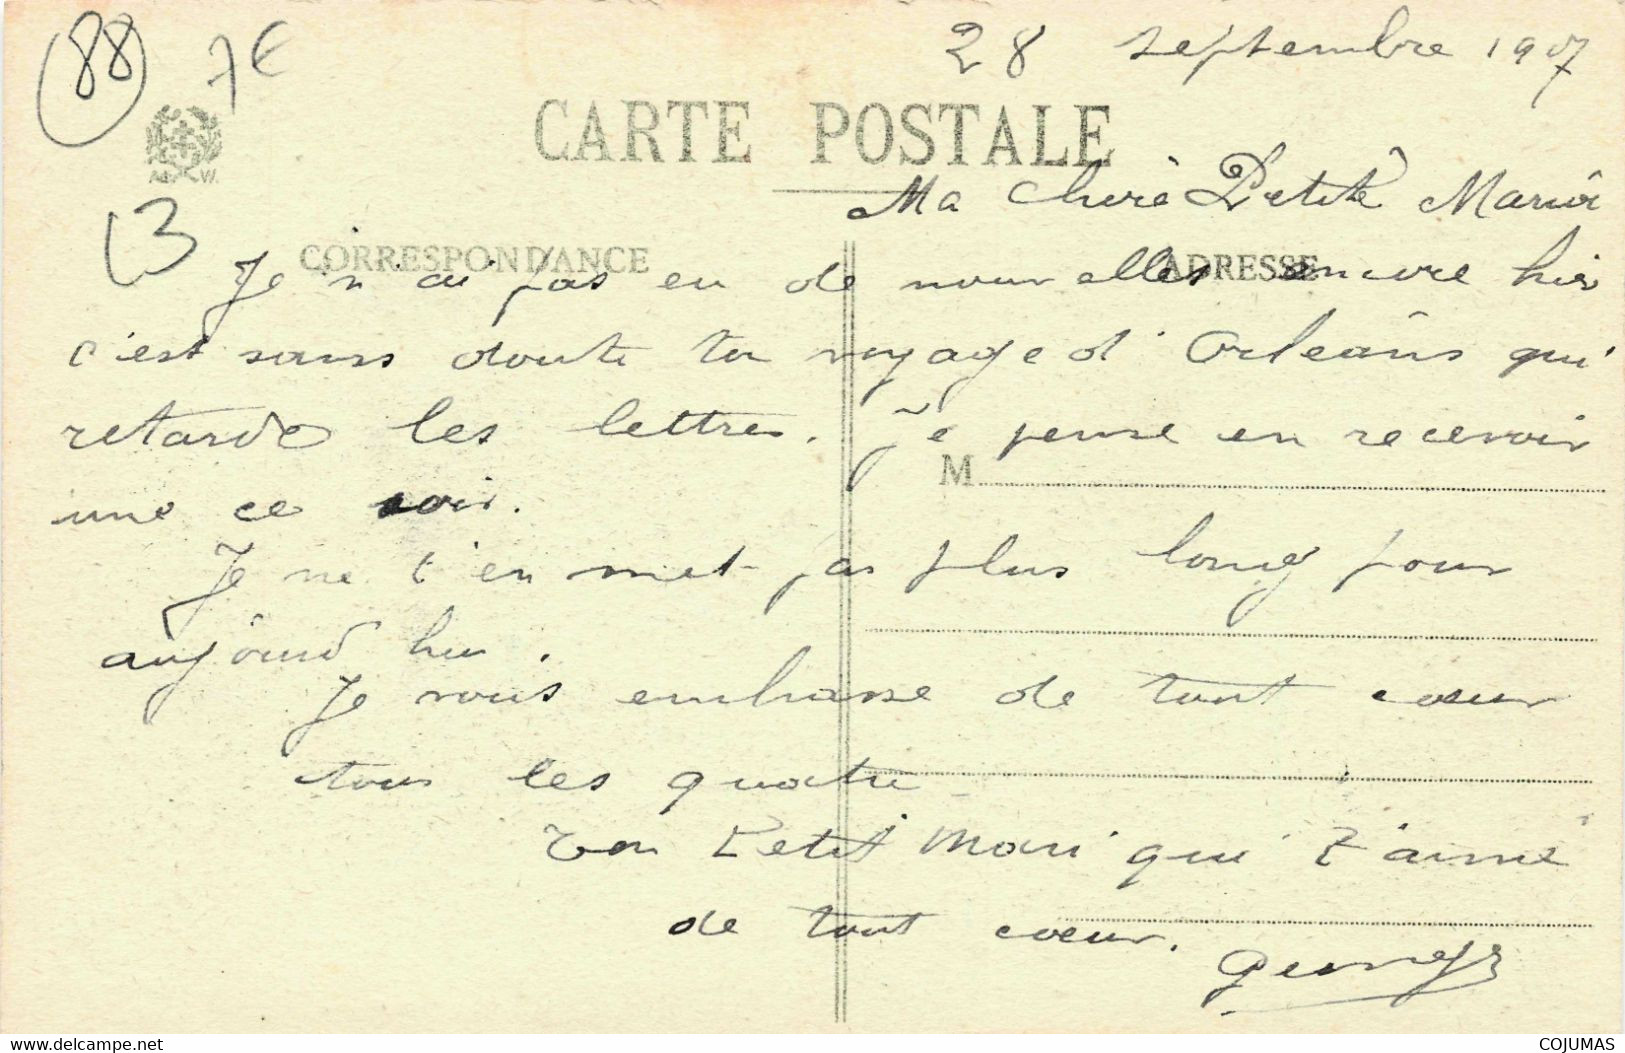 88
7€
28 septembre 1907
CARTE POSTALE
Ma Chère Petite
13
CORRESPONDANCE
ADRESSE
Je n'ai pas eu de nouvelles encore hier
c'est sans doute ton voyage d'Orléans qui
retarde les lettres. je pense en recevoir
M
une ce soir.
Je ne t'en met pas plus long pour
aujourd hui.
Je vous embrasse de tout coeur
tous les quatre
Ton Petit Mari qui t'aime
de tout coeur.
Georges
Visitez Delcampe.net
COJUMAS